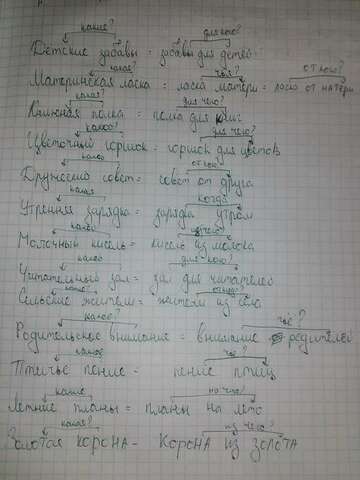 какие? для кого?
Детские забавы = забавы для детей
какая? чья? от кого?
Материнская ласка = ласка матери = ласка от матери
какая? для чего?
Книжная полка = полка для книг
какой? для чего?
Цветочный горшок = горшок для цветов
какой от кого?
Дружеский совет = совет от друга
какая когда
Утренняя зарядка = зарядка утром
какой из чего?
Молочный кисель = кисель из молока
какой для кого?
Читательный зал = зал для читателей
какие? откуда?
Сельские жители = жители из села
какое? чье?
Родительское внимание = внимание родителей
какое чье?
Птичье пение = пение птиц
какие на что?
Летние планы = планы на лето
какая? из чего?
Золотая корона - корона из золота